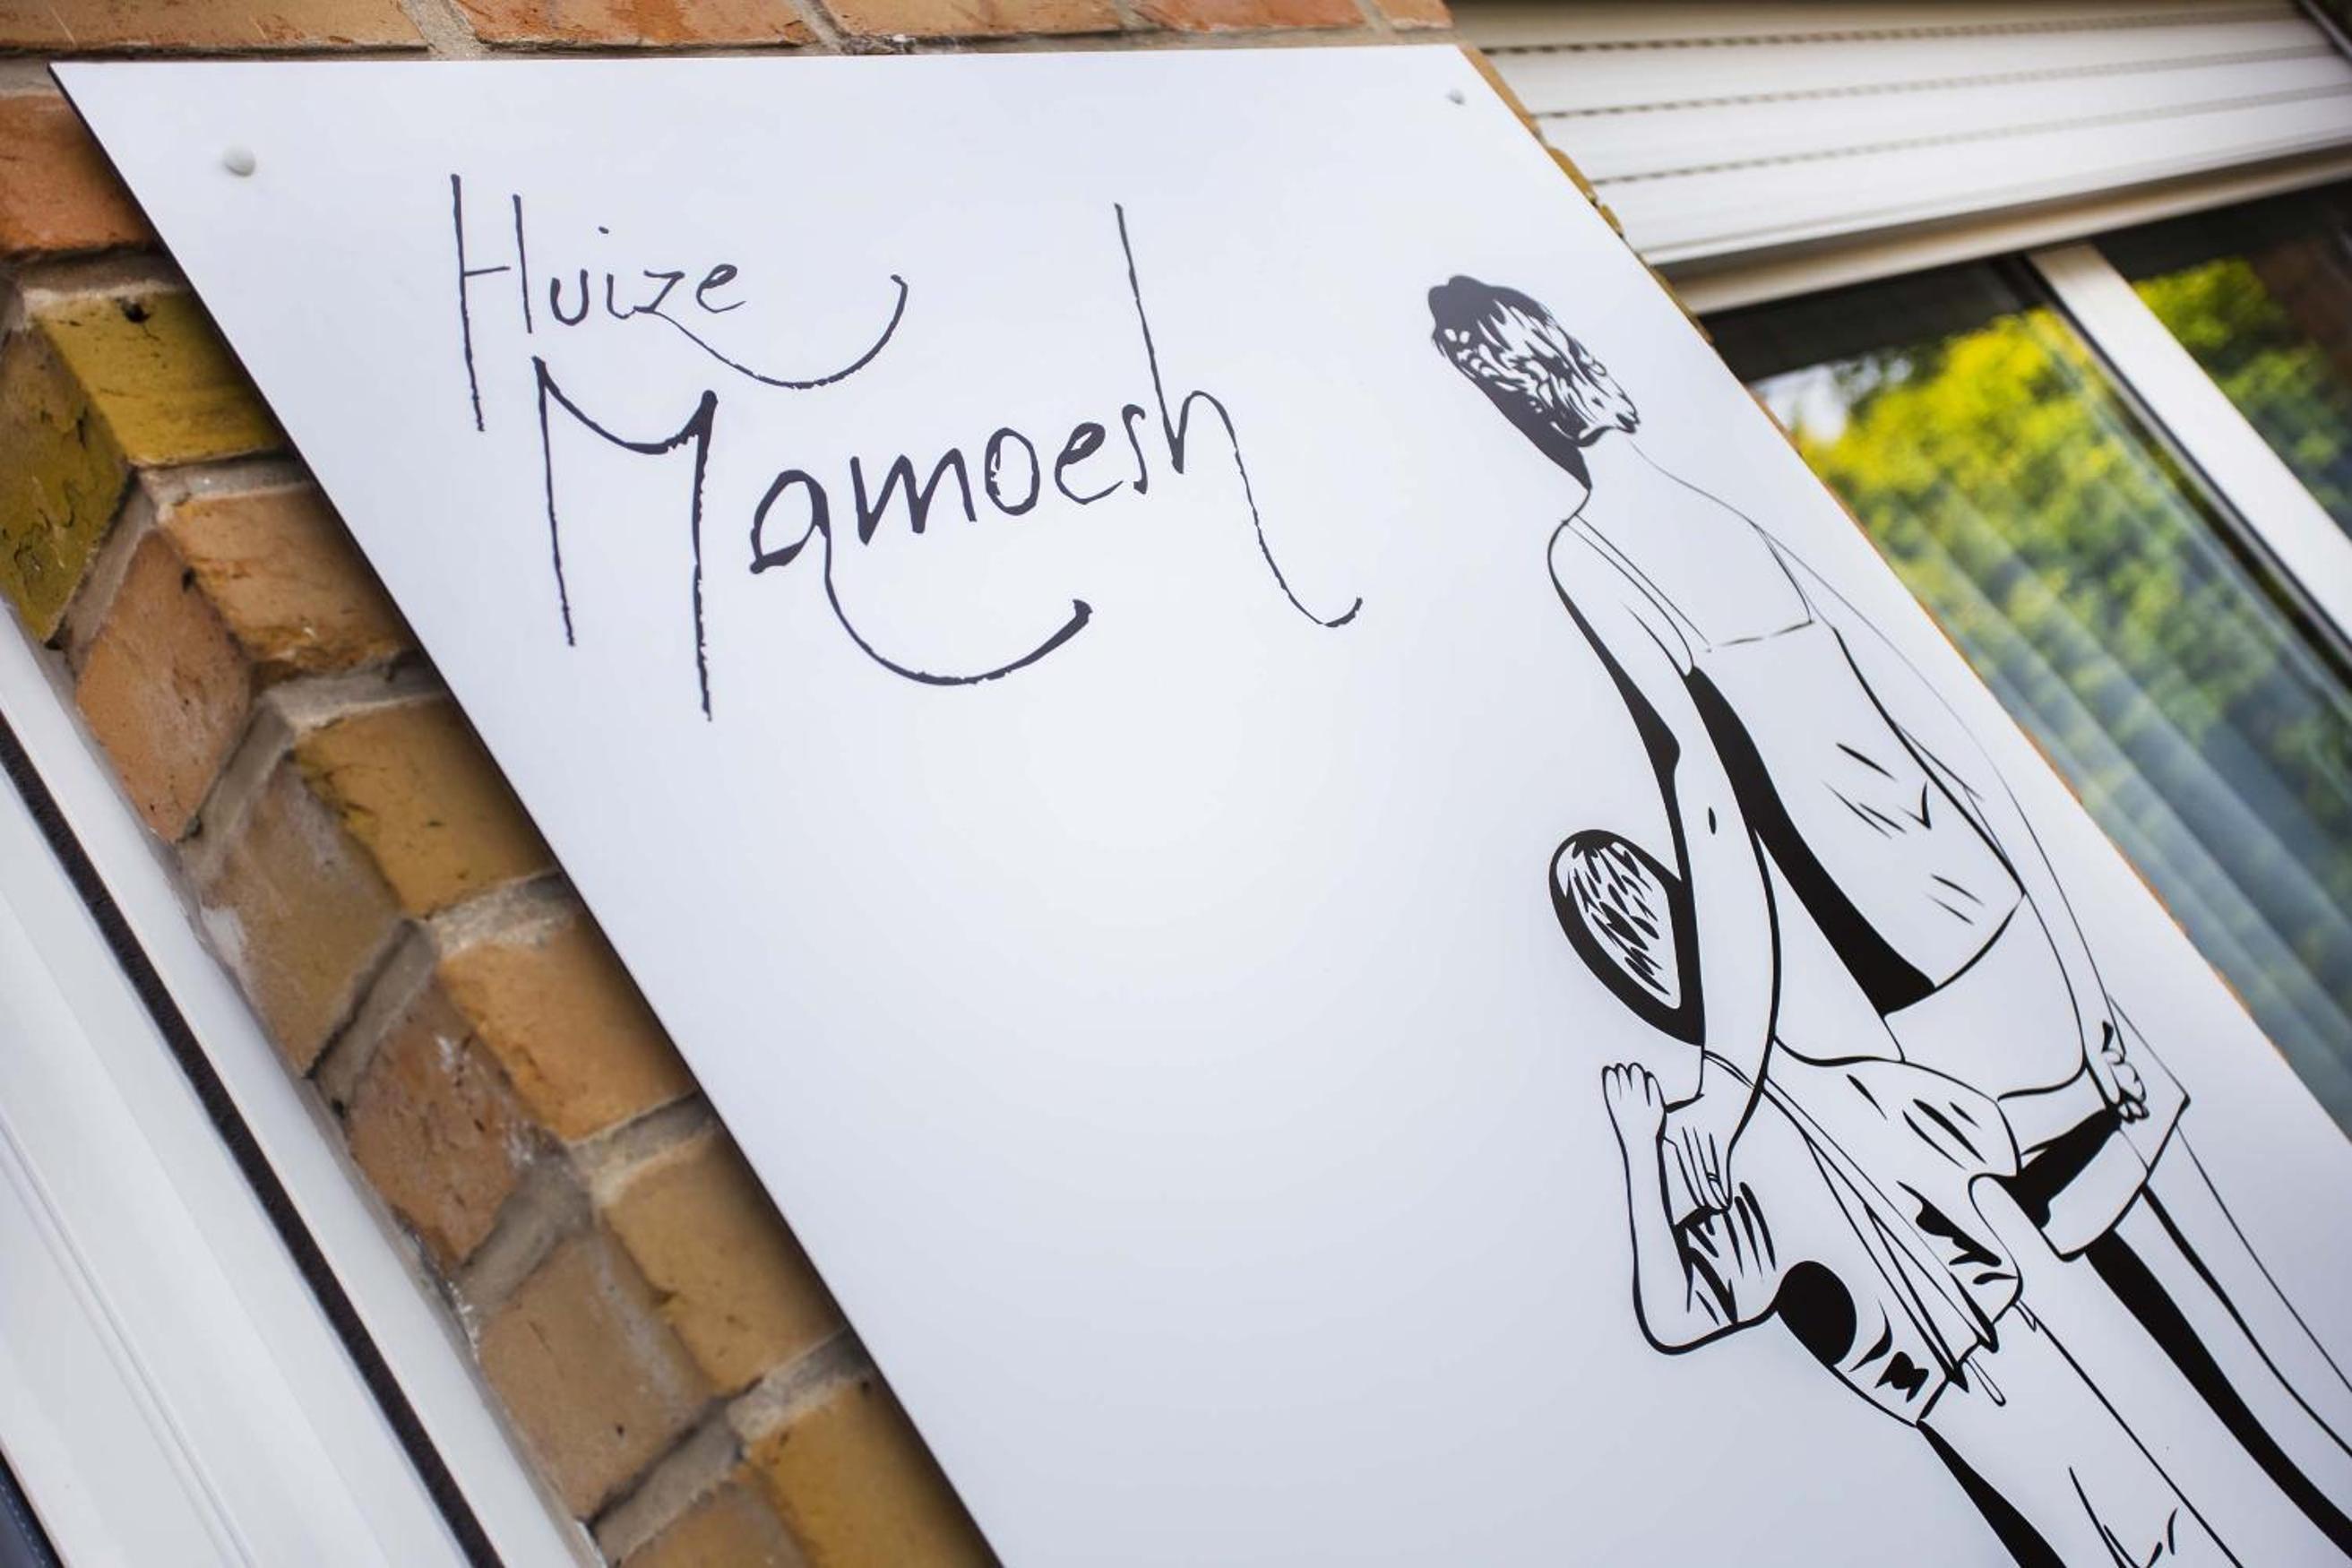 Huize
Mamoesh